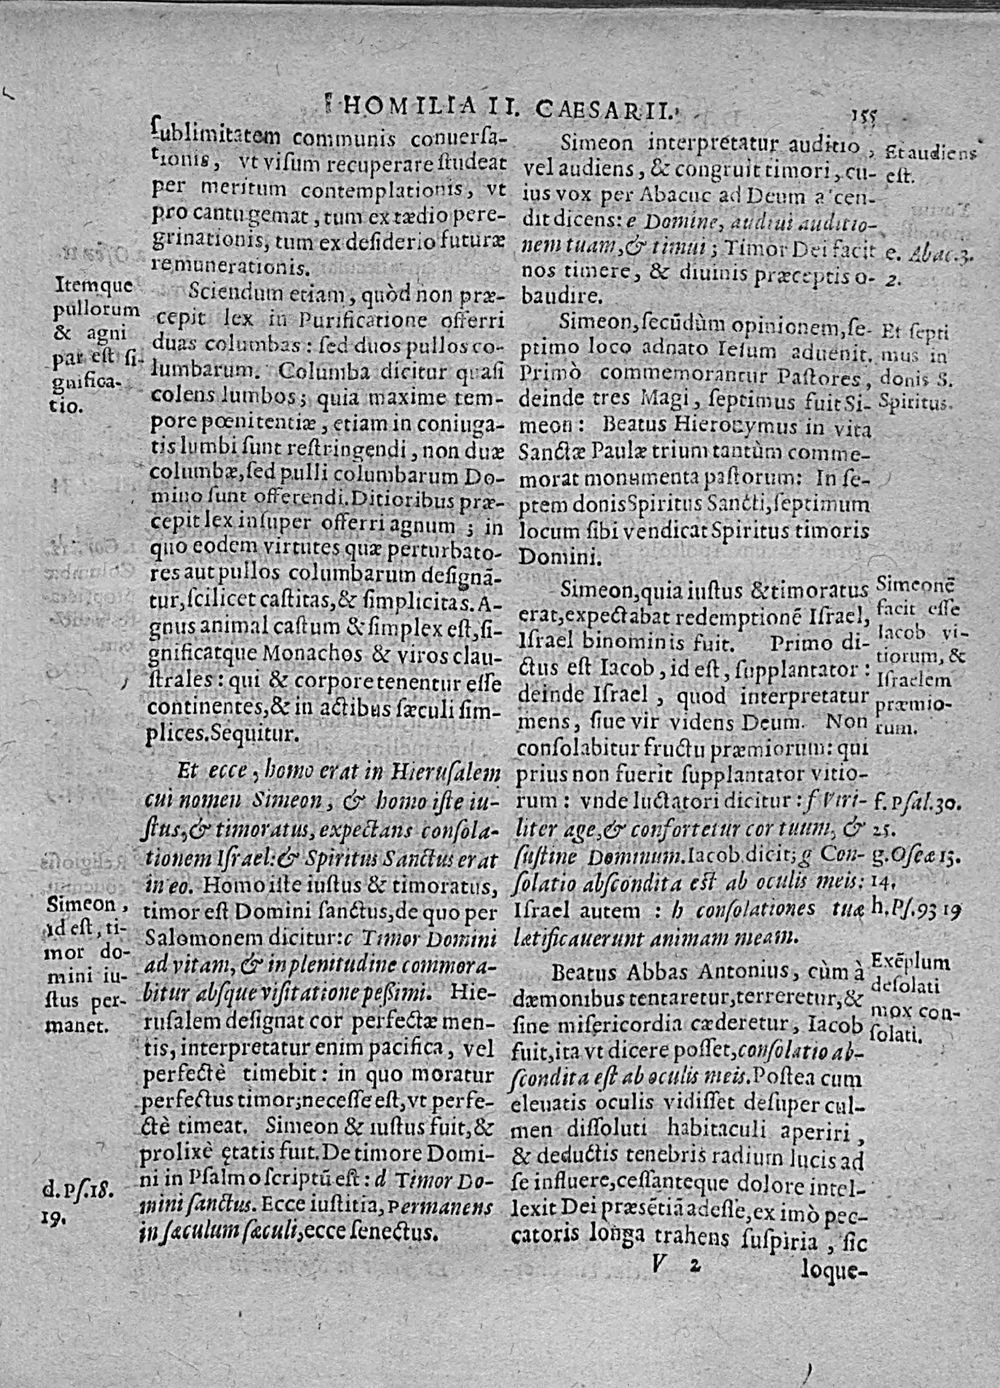 HOMILIA II. CAESARII.
155
sublimitatem communis conuersa-
tionis, vt visum recuperare studeat
per meritum contemplationis, vt
pro cantu gemat, tum ex tædio pere-
grinationis, tum ex desiderio futuræ
remunerationis.
Sciendum etiam, quòd non præ-
cepit lex in Purificatione offerri
duas columbas: sed duos pullos co-
lumbarum. Columba dicitur quasi
colens lumbos; quia maxime tem-
pore pœnitentiæ, etiam in coniuga-
tis lumbi sunt restringendi, non duæ
columbæ, sed pulli columbarum Do-
mino sunt offerendi. Ditioribus præ-
cepit lex insuper offerri agnum; in
quo eodem virtutes quæ perturbato-
res aut pullos columbarum designã-
tur, scilicet castitas, & simplicitas. A-
gnus animal castum & simplex est, si-
gnificatque Monachos & viros clau-
strales: qui & corpore tenentur esse
continentes, & in actibus sæculi sim-
plices. Sequitur.
Et ecce, homo erat in Hierusalem
cui nomen Simeon, & homo iste iu-
stus, & timoratus, expectans consola-
tionem Israel: & Spiritus Sanctus erat
in eo. Homo iste iustus & timoratus,
timor est Domini sanctus, de quo per
Salomonem dicitur: c Timor Domini
ad vitam, & in plenitudine commora-
bitur absque visitatione pessimi. Hie-
rusalem designat cor perfectæ men-
tis, interpretatur enim pacifica, vel
perfectè timebit: in quo moratur
perfectus timor; necesse est, vt perfe-
ctè timeat. Simeon & iustus fuit, &
prolixè ętatis fuit. De timore Domi-
ni in Psalmo scriptũ est: d Timor Do-
mini sanctus. Ecce iustitia, Permanens
in sæculum sæculi, ecce senectus.
Itemque
pullorum
& agni
par est si-
gnifica-
tio.
Simeon,
id est, ti-
mor do-
mini iu-
stus per-
manet.
d. Ps. 18.
19.
Simeon interpretatur auditio,
vel audiens, & congruit timori, cu-
ius vox per Abacuc ad Deum ascen-
dit dicens: e Domine, audiui auditio-
nem tuam, & timui; Timor Dei facit
nos timere, & diuinis præceptis o-
baudire.
Simeon, secũdùm opinionem, se-
ptimo loco adnato Iesum aduenit.
Primò commemorantur Pastores,
deinde tres Magi, septimus fuit Si-
meon: Beatus Hieronymus in vita
Sanctæ Paulæ trium tantùm comme-
morat monumenta pastorum: In se-
ptem donis Spiritus Sancti, septimum
locum sibi vendicat Spiritus timoris
Domini.
Simeon, quia iustus & timoratus
erat, expectabat redemptionẽ Israel,
Israel binominis fuit. Primo di-
ctus est Iacob, id est, supplantator:
deinde Israel, quod interpretatur
mens, siue vir videns Deum. Non
consolabitur fructu præmiorum: qui
prius non fuerit supplantator vitio-
rum: vnde luctatori dicitur: f Viri-
liter age, & confortetur cor tuum, &
sustine Dominum. Iacob dicit; g Con-
solatio abscondita est ab oculis meis:
Israel autem: h consolationes tuæ
lætificauerunt animam meam.
Beatus Abbas Antonius, cùm à
dæmonibus tentaretur, terreretur, &
sine misericordia cæderetur, Iacob
fuit, ita vt dicere posset, consolatio ab-
scondita est ab oculis meis. Postea cum
eleuatis oculis vidisset desuper cul-
men dissoluti habitaculi aperiri,
& deductis tenebris radium lucis ad
se influere, cessanteque dolore intel-
lexit Dei præsẽtiã adesse, ex imò pec-
catoris longa trahens suspiria, sic
Et audiens
est.
e. Abac. 3.
2.
Et septi
mus in
donis S.
Spiritus.
Simeonẽ
facit esse
Iacob vi-
tiorum, &
Israelem
præmio-
rum.
f. Psal. 30.
25.
g. Oseæ 13.
14.
h. Ps. 93 19
Exẽplum
desolati
mox con-
solati.
V 2
loque-